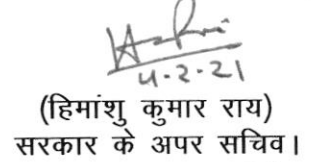 4-2-21
(हिमांशु कुमार राय)
सरकार के अपर सचिव।